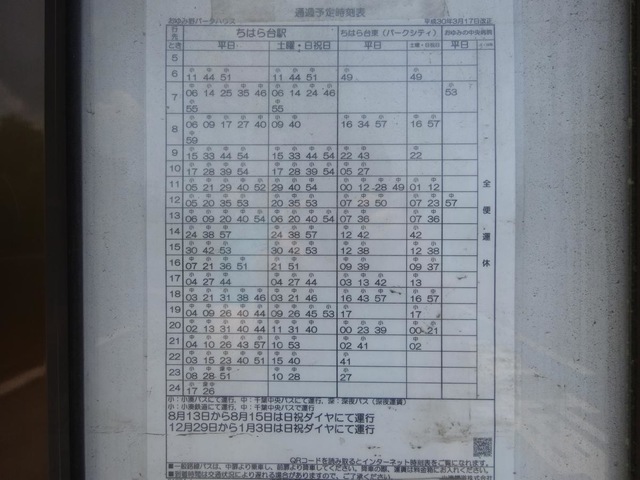 通過予定時刻表
おゆみ野パークハウス 平成30年3月17日改正
行先 ちはら台駅 ちはら台東(パークシティ) おゆみの中央病院
とき 平日 土曜・日祝日 平日 土曜・日祝日 平日
5
6 11 44 51 11 44 51 49 49
7 06 14 25 35 46 06 14 24 46 53
55 55
8 06 09 17 27 40 09 40 16 34 57 16 57
59
9 15 33 44 54 15 33 44 54 22 43 22
10 17 28 39 54 17 28 39 54 05 27
11 05 21 29 40 52 29 40 54 00 12 28 49 01 12
12 05 20 35 53 20 35 53 07 23 50 07 23 57
13 06 09 20 40 54 06 20 40 54 07 36 07 36
14 24 38 57 24 38 57 12 42 42
15 30 42 53 30 42 53 12 38 12 38
16 07 21 36 51 21 51 09 39 09 37
17 04 27 44 04 27 44 03 13 42 13
18 03 21 31 38 46 03 21 46 16 43 57 16 57
19 04 09 26 40 44 09 26 45 53 17 17
20 02 13 31 40 44 11 31 40 00 23 39 00 21
21 04 10 26 43 57 10 53 02 41 02
22 03 15 23 40 51 15 40 41
23 08 28 51 10 28 27
24 17 26
全便運休
小:小湊バスにて運行、中:千葉中央バスにて運行、深:深夜バス(深夜運賃)
小:小湊鉄道にて運行、中:千葉中央バスで運行
8月13日から8月15は日祝ダイヤにて運行
12月29日から1月3日は日祝ダイヤにて運行
QRコードを読み取るとインターネット時刻表をご覧になれます。
■一般路線バスは、中扉より乗車し、前扉より降車してください。降車の際、運賃は料金箱にお入れください。
■到着時間は交通状況により遅れる場合がありますので、ご了承ください。